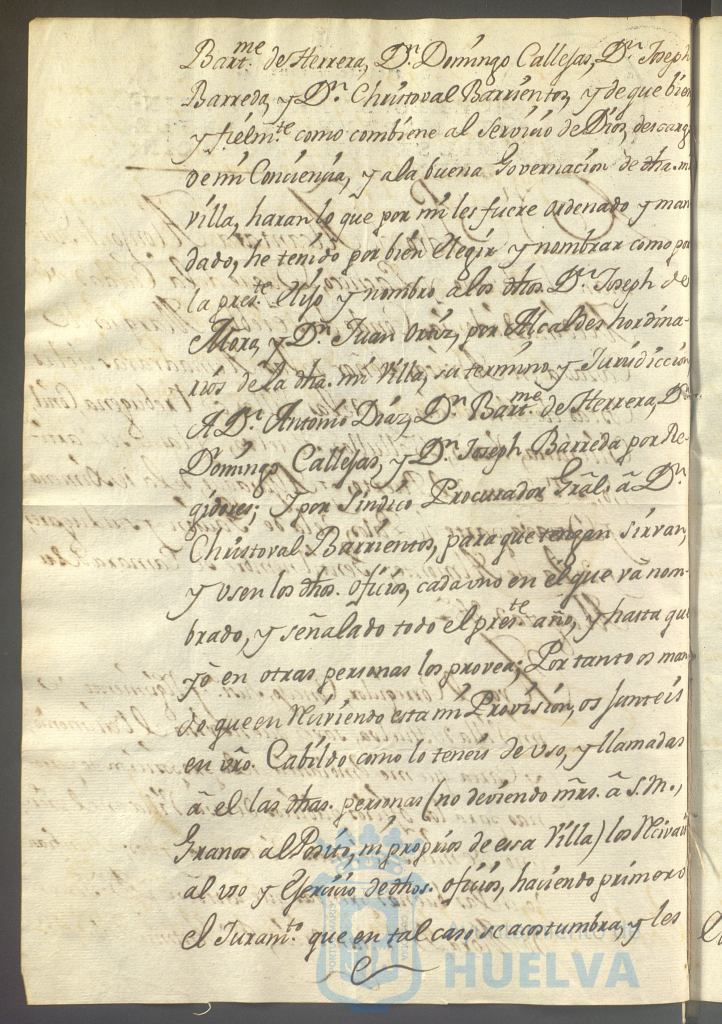 Bart.me de Herrera, D.n Domingo Callejas, D.n Joseph
Barreda, y D.n Christoval Barrientos, y de que bien
y fielm.te como combiene al servicio de Dios, descargo
de mi Conciencia, y a la buena Governacion de dha. mi
villa, haran lo que por mi les fuere ordenado y man
dado, he tenido por bien elegir y nombrar como por
la pres.te elijo y nombro a los dhos. D.n Joseph de
Mora, y D.n Juan Ortiz, por Alcaldes hordina-
rios de la dha. mi Villa, su termino y Jurisdiccion
A D.n Antonio Diaz, D.n Bart.me de Herrera, D.n
Domingo Callejas, y D.n Joseph Barreda por Re-
gidores; Y por Sindico Procurador Gral. â D.n
Christoval Barrientos, para que tengan sirvan,
y usen los dhos. oficios, cada uno en el que vâ nom-
brado, y señalado todo el pres.te año, y hasta que
yô en otras personas los provea; Por tanto os man
do que en reciviendo esta mi Provision, os Junteis
en vro. Cabildo como lo teneis de uso, y llamadas
â el las dhas. personas (no deviendo mrs. â S.M.,
Granos al Posito, ni proprios de esa Villa) los recivais
al uso y Exercicio de dhos. oficios, haciendo primero
el Juram.to que en tal caso se acostumbra, y les
HUELVA